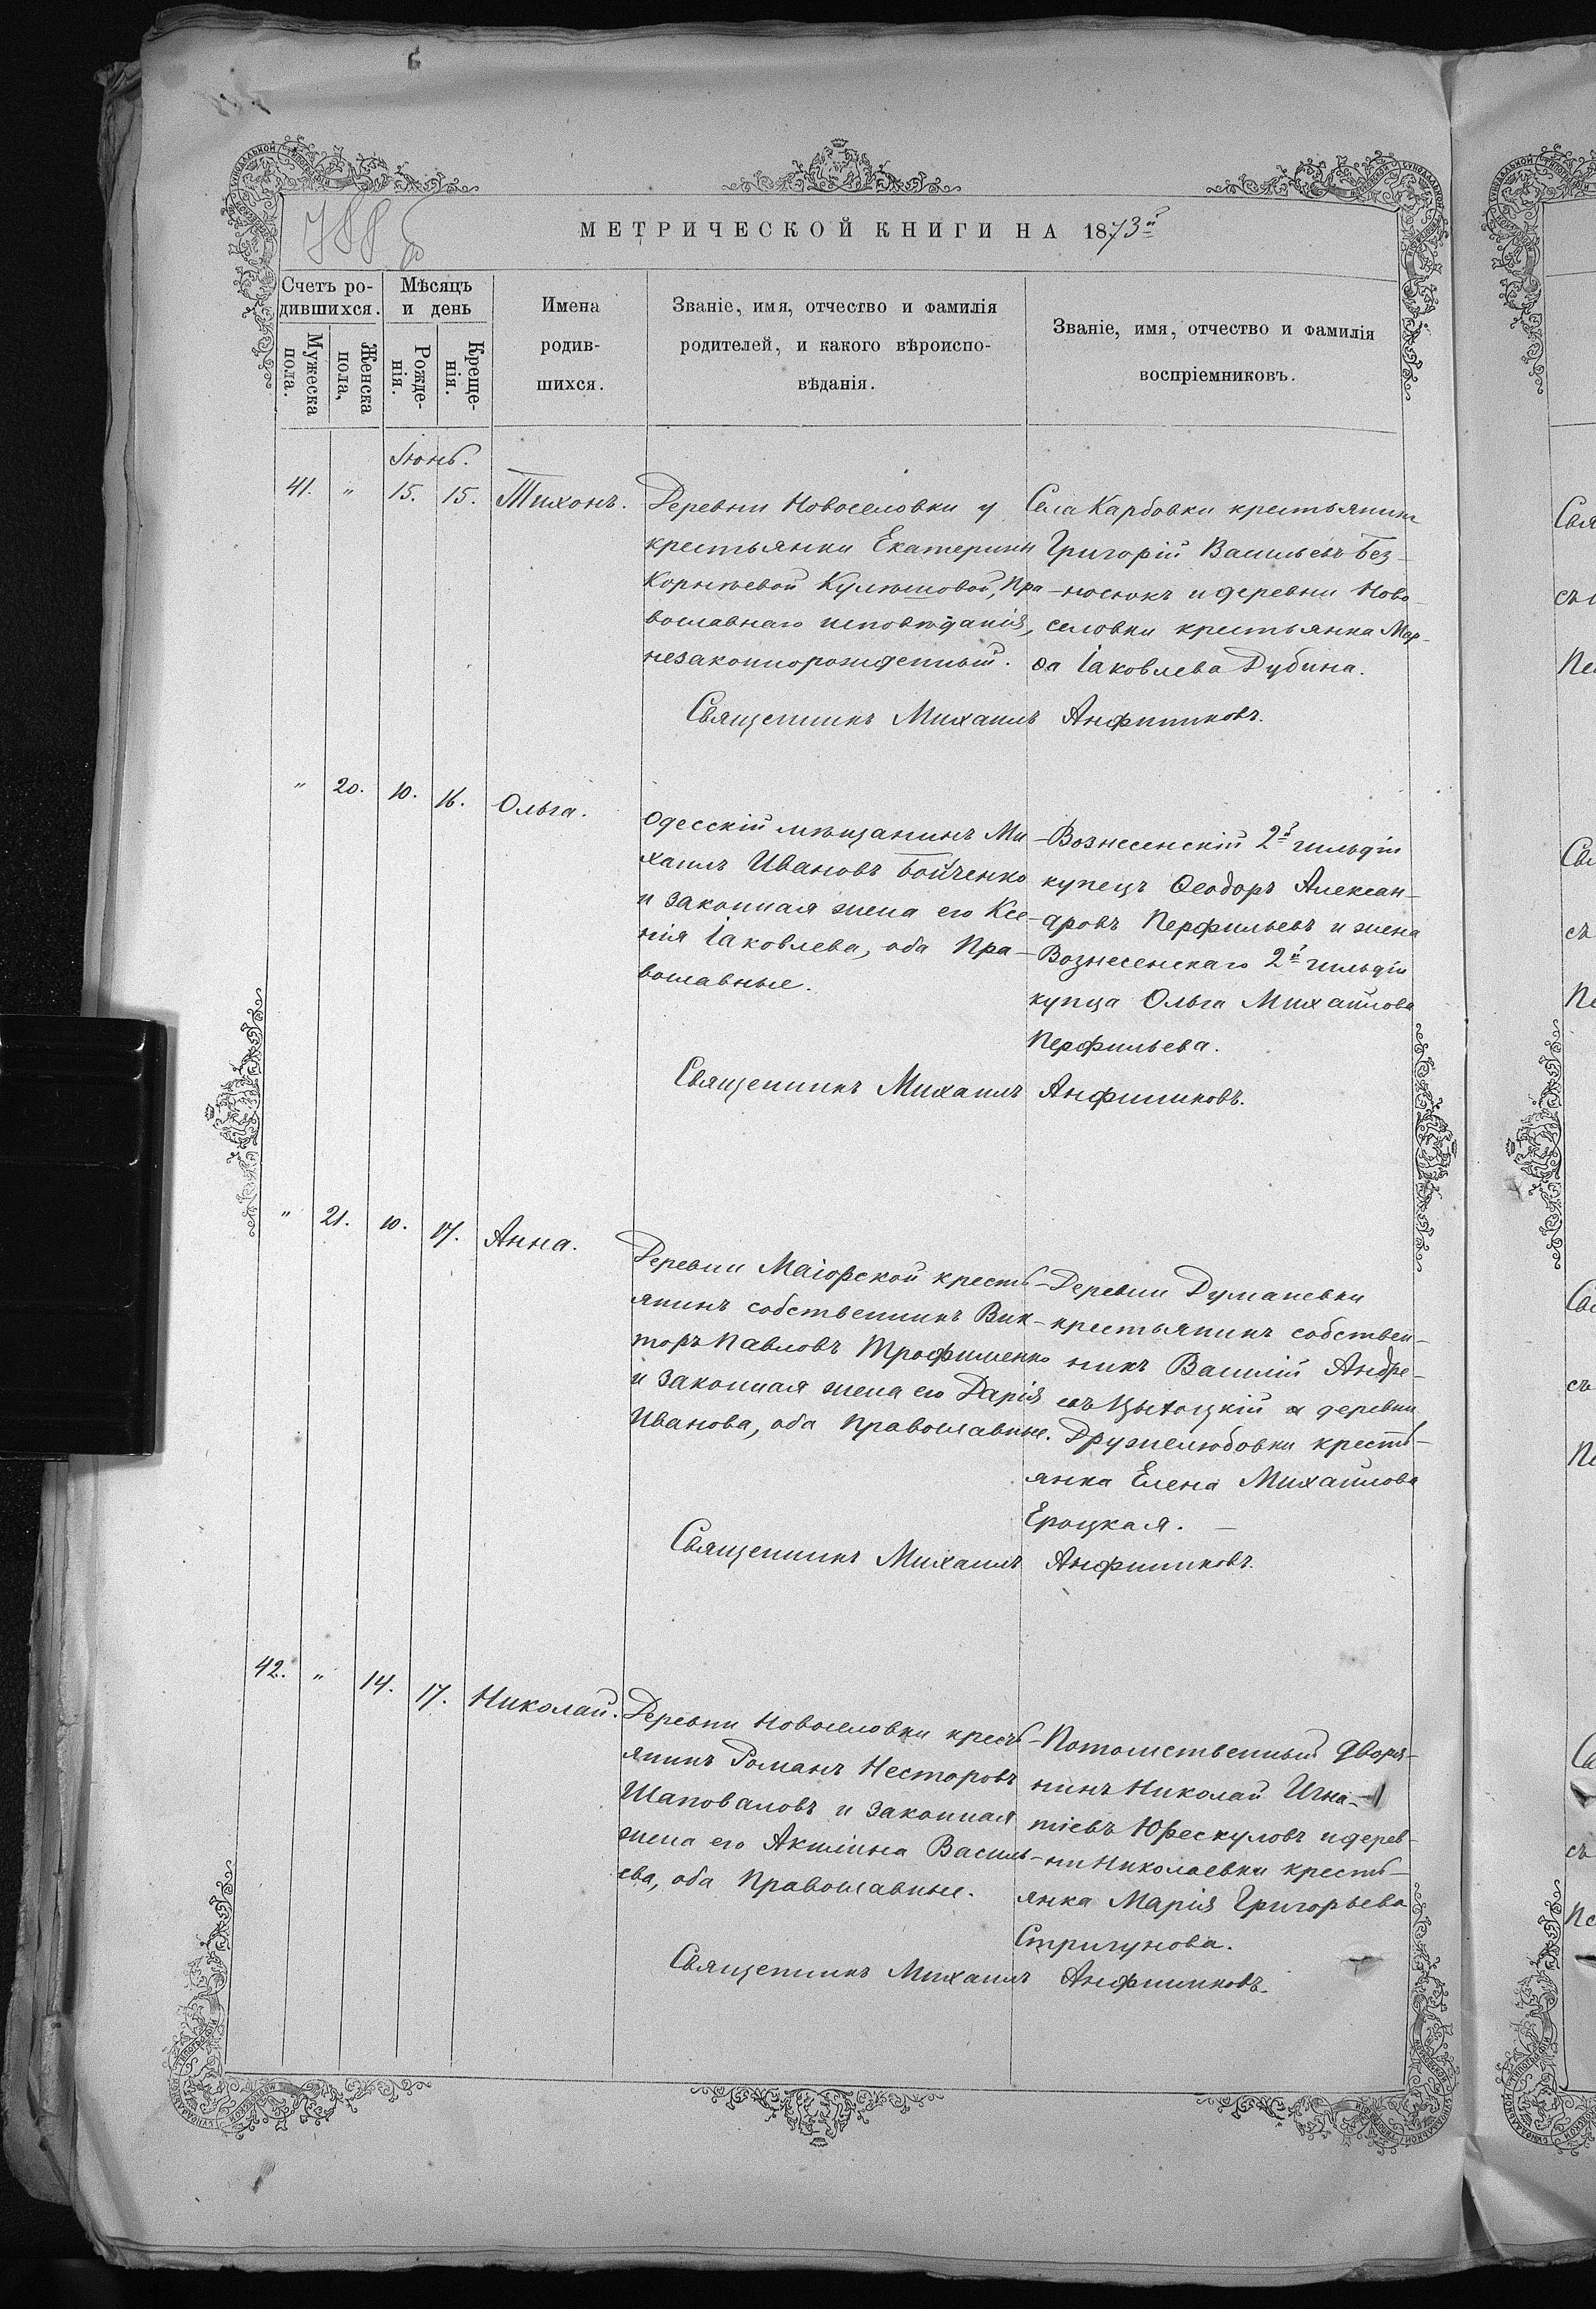 788 б
МЕТРИЧЕСКОЙ КНИГИ НА 1873й
Счетъ ро-
дившихся.
Мужеска
пола.
Женска
пола,
Мѣсяцъ
и день
Рожде-
нія.
Креще-
нія.
Имена
родив-
шихся.
Званіе, имя, отчество и фамилія
родителей, и какого вѣроиспо-
вѣданія.
Званіе, имя, отчество и фамилія
воспріемниковъ.
Іюнь.
41. " 15. 15. Тихонъ.
Деревни Новоселовки у
крестьянки Екатерины
Корнѣевой Кулѣшовой, Пра
вославнаго исповѣданія,
незаконнорожденный.
Села Карбовки крестьянинъ
Григорій Васильевъ Без-
-носюкъ и деревни Ново-
селовки крестьянка Мар-
ѳа Іаковлева Дубина.
Священникъ Михаилъ Анфиниковъ.
" 20. 10. 16. Ольга.
Одесскій мѣщанинъ Ми-
хаилъ Ивановъ Бойченко
и законная жена его Ксе-
нія Іаковлева, оба Пра-
вославные.
Вознесенскій 2й гильдіи
купецъ Ѳеодоръ Алексан-
дровъ Перфильевъ и жена
Вознесенскаго 2й гильдіи
купца Ольга Михайлова
Перфильева.
Священникъ Михаилъ Анфиниковъ.
" 21. 10. 17. Анна.
Деревни Маіорской кресть-
янинъ собственникъ Вик-
торъ Павловъ Трофименко
и законная жена его Дарія
Иванова, оба Православные.
Деревни Думаневки
крестьянинъ собствен-
никъ Василій Андре-
евъ и деревни
Дружелюбовки кресть-
янка Елена Михайлова
Ероцкая.
Священникъ Михаилъ Анфиниковъ.
42. " 14. 17. Николай.
Деревни Новоселовки кресть-
янинъ Романъ Несторовъ
Шаповаловъ и законная
жена его Акилина Василь-
ева, оба Православные.
Потомственный Дворя-
нинъ Николай Игна-
тіевъ Юрескуловъ и дерев-
ни Николаевки кресть-
янка Марія Григорьева
Стригунова.
Священникъ Михаилъ Анфиниковъ.